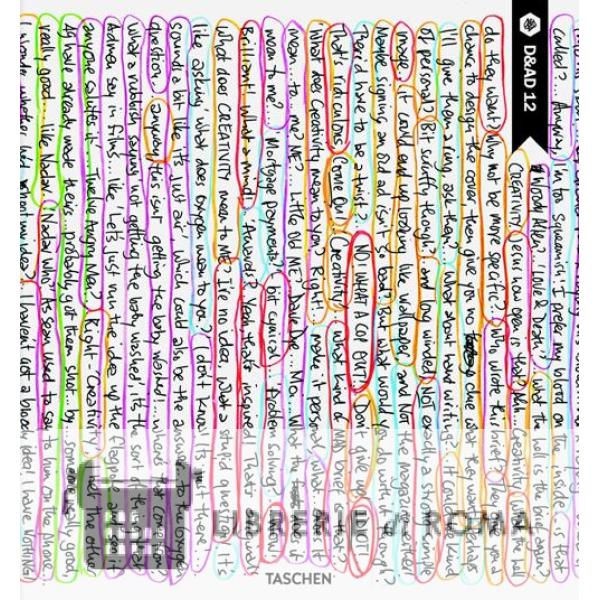 D&AD 12
called?... Anyway, I'm too squeamish. I prefer my word on the inside... is that
Woody Allen... 'Love & Death'? What the hell is the brief again?
CREATIVITY. open is that? Ahh... Creativity. What the hell
do they want? Why not be more specific? Who wrote this brief? They give you a
chance to design the cover then give you no clue what they want. Perhaps
I'll give them a ring, ask them? What about hand writing? It could be kind
of personal? Bit scruffy though? and long winded. Not exactly a strong simple
image. It could end up looking like wallpaper... and Not the magazine either!
Maybe signing an ad isn't so bad? But what would you do with it though
There'd have to be a twist? NO! WHAT A COP OUT! Don't give up
That's ridiculous. Come On! Creativity. What kind of brief is that?
'What does Creativity mean to you?' Right... make it personal... what does it
mean... to me? ME?... the old ME. Dave Dye. Moi. What the does it
mean to me?... Mortgage payments? bit cynical... Problem Solving?... I know!
Brilliant! What a mind! Awards? Yeah, that's inspired. That's
What does CREATIVITY mean to ME? I've no idea. What a stupid question. It's
like asking what does oxygen mean to you? I don't know! It's just there
sounds a bit like it's just air, which could also be the answer to the oxygen
question, anyway this isn't getting the baby washed!... where's that come from?
What a rubbish saying 'not getting the baby washed', it's the sort of thing that
admen say in films like 'Let's just run the idea up the flagpole and see if
anyone salutes it'... Twelve Angry Men...? Right - Creativity just the other
have already made theirs... probably got them shot... by someone really good,
really good... like Nadav. Nadav who? As seen used to say to him on the phone.
I wonder whether an idea? I haven't got a bloody idea! I have NOTHING
LIBRERIE di ROMA
TASCHEN